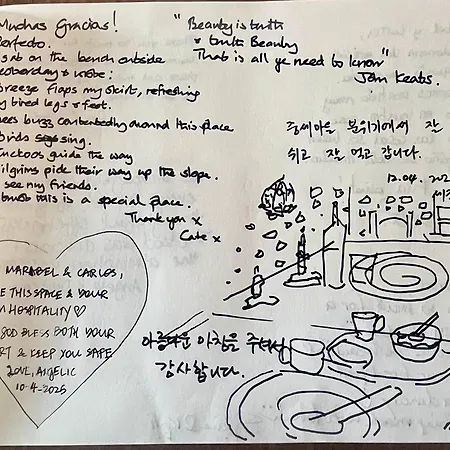 Muchas Gracias!
Perfecto.
I sat on the bench outside
yesterday & wrote:
breeze flaps my skirt, refreshing
my tired legs & feet.
bees buzz contentedly around this place
birds sing.
cuckoos guide the way
pilgrims pick their way up the slope.
I see my friends.
this is a special place.
Thank you x
Cate x
"Beauty is truth
& truth Beauty
That is all ye need to know"
John Keats.
중세마을 분위기에서 잘
쉬고 잘 먹고 갑니다.
12.04.202
MARABEL & CARLOS,
THIS SPACE & YOUR
HOSPITALITY♡
GOD BLESS BOTH YOUR
& KEEP YOU SAFE
LOVE, ANGELIC
10-4-2025
아름다운 아침을 주셔서
감사합니다.